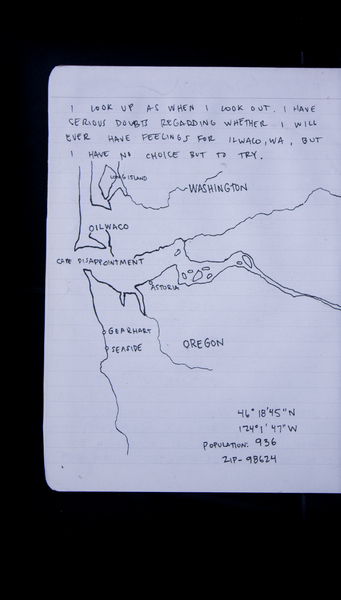 I LOOK UP AS WHEN I LOOK OUT. I HAVE
SERIOUS DOUBTS REGARDING WHETHER I WILL
EVER HAVE FEELINGS FOR ILWACO, WA, BUT
I HAVE NO CHOICE BUT TO TRY.
LONG ISLAND
WASHINGTON
ILWACO
CAPE DISAPPOINTMENT
ASTORIA
GEARHART
SEASIDE
OREGON
46° 18'45"N
124°1'47"W
POPULATION: 936
ZIP- 98624